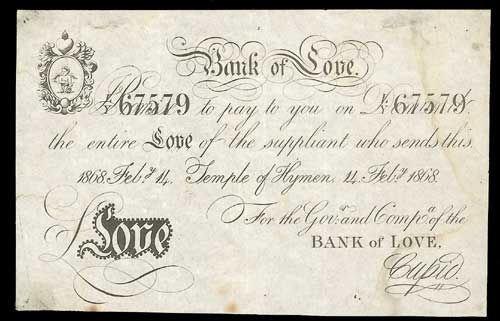 Bank of Love.
№ 67579 to pay to you on D: № 67579
the entire Love of the suppliant who sends this
1868. Feb.y 14. Temple of Hymen. 14. Feb.y 1868.
For the Gov.r and Comp.a of the
£ Love
BANK of LOVE.
Cupid.